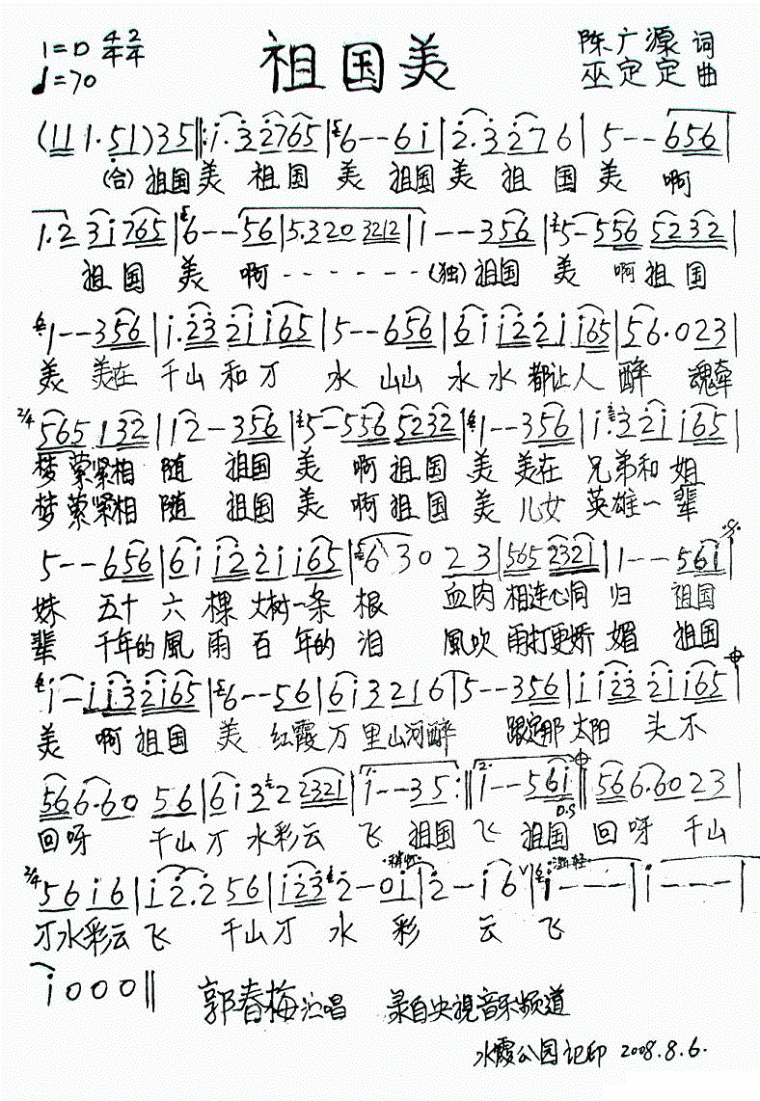 1=D 4/4 2/4 祖国美 陈广源 词
♩=70 巫定定 曲
(11 1·51)35‖:i·32765|6--6i|2·3276|5--656|
(合)祖国美 祖国美 祖国美 祖国美 啊
1·2 3i765|6--56|5·320 3212|1--356|5-556 5232|
祖国美 啊------(独)祖国美 啊祖国
1--356|i·23 2i i65|5--656|6i i22i i65|56·023|
美 美在 千山和万 水 山山 水水都让人 醉 魂牵
2/4 565 132|12-356|5-556 5232|1--356|i·32i i65|
梦萦紧相 随 祖国 美 啊祖国 美 美在 兄弟和姐
梦萦紧相 随 祖国 美 啊祖国 美 儿女 英雄一辈
5--656|6i i22i i65|6 30 23|565 2321|1--56i|
妹 五十六棵大树一条 根 血肉 相连心同 归 祖国
辈 千年的風雨百年的泪 風吹雨打更娇 媚 祖国
i-ii·3 2i65|6--56|6i3216|5--356|ii23 2i i65|
美 啊祖国 美 红霞万里山河醉 跟定那太阳 头不
566·60 56|6i32 2321|1. i--35:‖2. i--56i‖566·6023|
D.S
回呀 千山万水彩云 飞 祖国 飞 祖国 回呀 千山
2/4 56i6|i2·256|i232-0i|2-i6|i---|i---|
万水彩云飞 千山万 水 彩 云 飞
i000‖ 郭春梅演唱 录自央視音乐频道
水霞公园记印 2008.8.6.